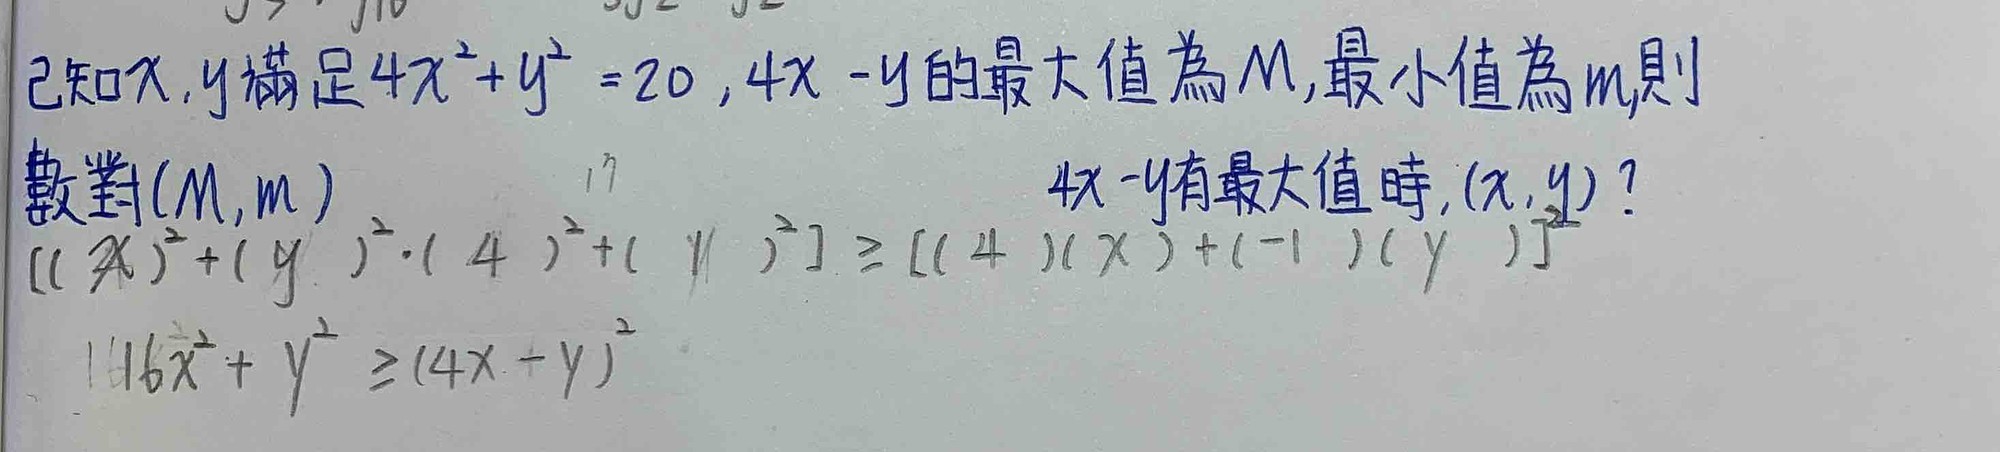 已知x,y滿足4x²+y²=20,4x-y的最大值為M,最小值為m,則
數對(M,m) 4x-y有最大值時,(x,y)?
17
[(x)²+(y)²·(4)²+(y)²]≥[(4)(x)+(-1)(y)]²
16x²+y²≥(4x-y)²